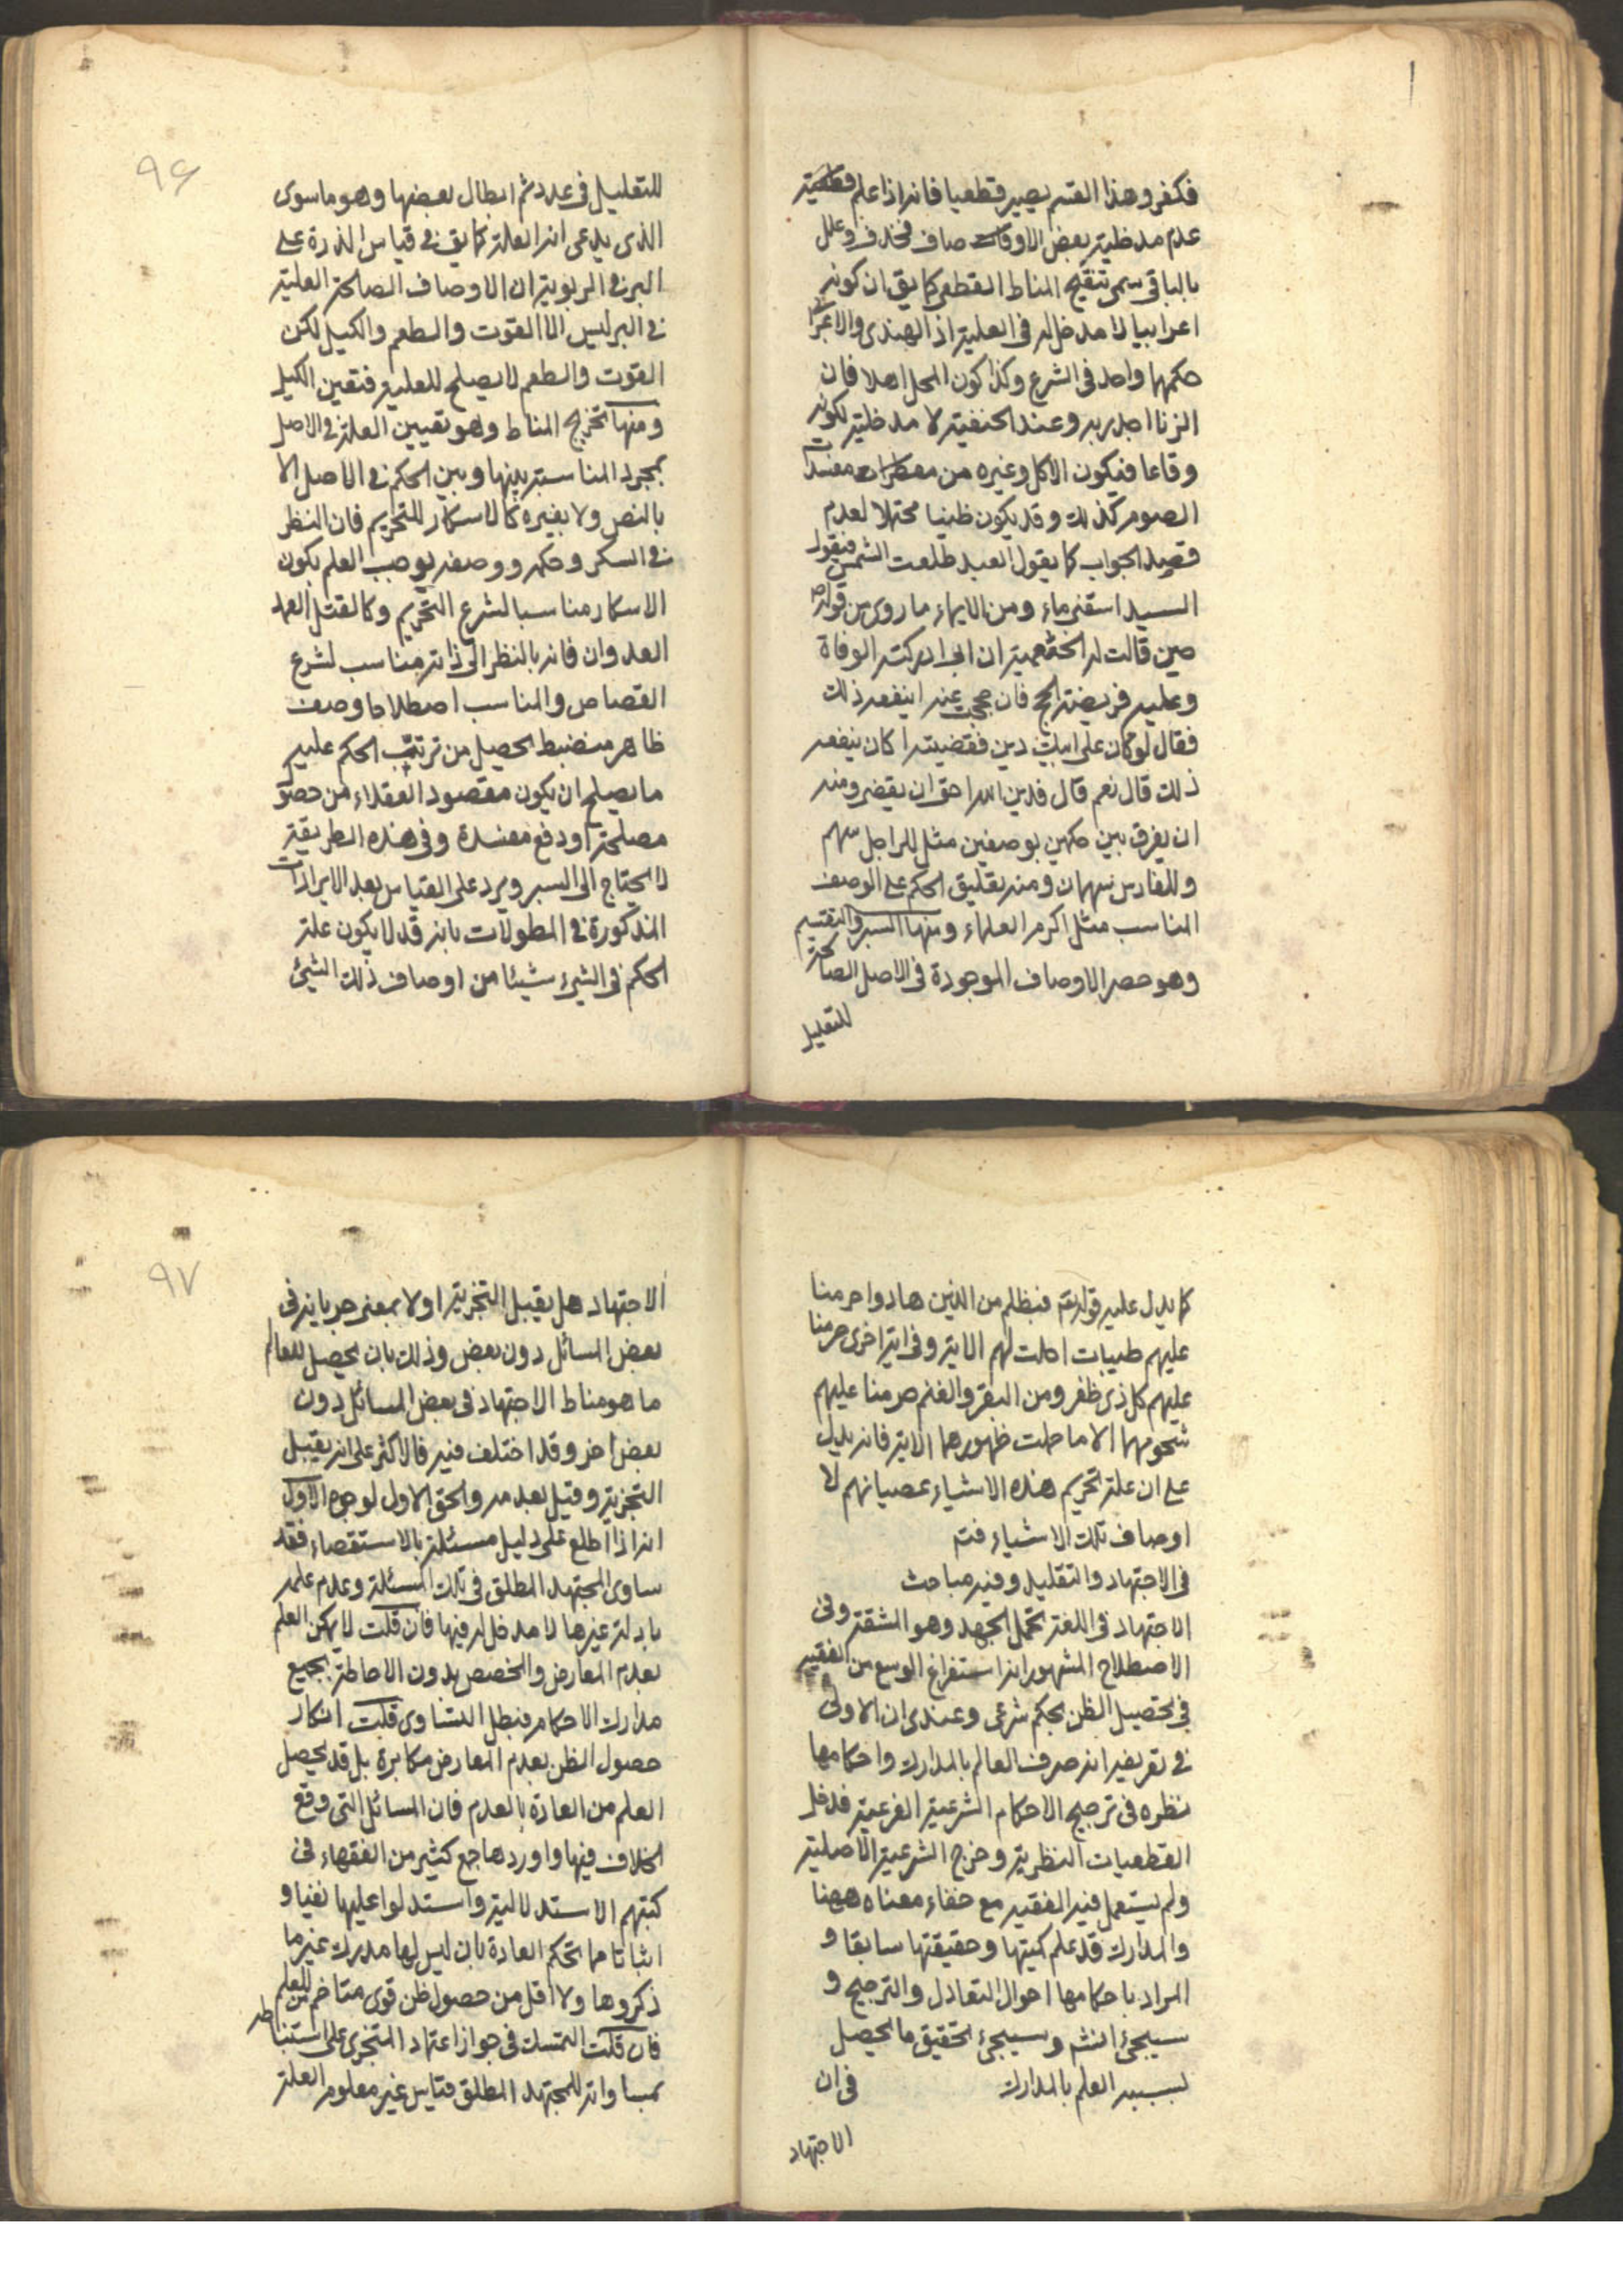 فكفر وهذا القسم يصير قطعيا فانه اذا علم قطعية
عدم مدخلية بعض الاوصاف فحذف وعلل
بالباقى سمى تنقيح المناط القطعى كما يق ان كونه
اعرابيا لا مدخل له فى العلية اذ الهندى والاعرابى
حكمهما واحد فى الشرع وكذا كون المحل اهلا فان
الزنا اجدر به وعند الحنفية لا مدخلية لكونه
وقاعا فيكون الاكل وغيره من مفطرات مفسدات
الصوم كذلك وقد يكون ظنيا محتملا لعدم
قصد الجواب كما يقول العبد طلعت الشمس فيقول
السيد اسقنى ماء ومن الايماء ما روى من قوله ص
حين قالت له الخثعمية ان ابى ادركته الوفاة
وعليه فريضة الحج فان حججت عنه اينفعه ذلك
فقال لو كان على ابيك دين فقضيته اكان ينفعه
ذلك قال نعم قال فدين الله احق ان يقضى ومنه
ان يفرق بين حكمين بوصفين مثل للراجل سهم
وللفارس سهمان ومنه تعليق الحكم على الوصف
المناسب مثل اكرم العلماء ومنها السبر والتقسيم
وهو حصر الاوصاف الموجودة فى الاصل الصالحة
للتعليل
٩۶
للتعليل فى عدد ثم ابطال بعضها وهو ما سوى
الذى يدعى انه العلة كما يق فى قياس الذرة على
البر فى الربوية ان الاوصاف الصالحة العلية
فى البر ليس الا القوت والطعم والكيل لكن
القوت والطعم لا يصلح للعلية فتعين الكيل
ومنها تخريج المناط وهو تعيين العلة فى الاصل
بمجرد المناسبة بينها وبين الحكم فى الاصل الا
بالنص ولا بغيره كالاسكار للتحريم فان النظر
فى السكر وحكمه ووصفه يوجب العلم بكون
الاسكار مناسبا لشرع التحريم وكالقتل العمد
العدوان فانه بالنظر الى ذاته مناسب لشرع
القصاص والمناسب اصطلاحا وصف
ظاهر منضبط الحصيل من ترتب الحكم عليه
ما يصلح ان يكون مقصود العقلاء من حصول
مصلحة او دفع مفسدة وفى هذه الطريقة
لا يحتاج الى السبر ويرد على القياس بعد الايرادات
المذكورة فى المطولات بانه قد لا يكون علة
الحكم فى الشىء شيئا من اوصاف ذلك الشىء
كما يدل عليه قوله تع فبظلم من الذين هادوا حرمنا
عليهم طيبات احلت لهم الاية وفى اية اخرى حرمنا
عليهم كل ذى ظفر ومن البقر والغنم حرمنا عليهم
شحومهما الا ما حملت ظهورهما الاية فانه يدل
على ان علة تحريم هذه الاشياء عصيانهم لا
اوصاف تلك الاشياء فتم
فى الاجتهاد والتقليد وفيه مباحث
الاجتهاد فى اللغة تحمل الجهد وهو المشقة وفى
الاصطلاح المشهور انه استفراغ الوسع من الفقيه
فى تحصيل الظن بحكم شرعى وعندى ان الاولى
فى تعريفه انه صرف العالم بالمدارك واحكامها
نظره فى ترجيح الاحكام الشرعية الفرعية فدخل
القطعيات النظرية وخرج الشرعية الاصلية
ولم يستعمل فيه الفقيه مع خفاء معناه ههنا
والمدارك قد علم كميتها وحقيقتها سابقا و
المراد باحكامها احوال التعادل والترجيح و
سيجىء انشم وسيجىء تحقيق ما يحصل
بسببه العلم بالمدارك فى ان
الاجتهاد
٩٧
الاجتهاد هل يقبل التجزية او لا بمعنى جريانه فى
بعض المسائل دون بعض وذلك بان يحصل للعالم
ما هو مناط الاجتهاد فى بعض المسائل دون
بعض اخر وقد اختلف فيه فالاكثر على انه يقبل
التجزية وقيل بعدمه والحق الاول لوجوه الاول
انه اذا اطلع على دليل مسئلة بالاستقصاء فقد
ساوى المجتهد المطلق فى تلك المسئلة وعدم علمه
بادلة غيرها لا مدخل له فيها فان قلت لا يمكن العلم
بعدم المعارض والمخصص بدون الاحاطة بجميع
مدارك الاحكام فبطل التساوى قلت انكار
حصول الظن بعدم المعارض مكابرة بل قد يحصل
العلم من العادة بالعدم فان المسائل التى وقع
الخلاف فيها واوردها جمع كثير من الفقهاء فى
كتبهم الاستدلالية واستدلوا عليها نفيا و
اثباتا مما تحكم العادة بان ليس لها مدرك غير ما
ذكروها ولا اقل من حصول ظن قوى متاخم للعلم
فان قلت التمسك فى جواز اعتماد المتجزى على استنباطه
بمساواته للمجتهد المطلق قياس غير معلوم العلة